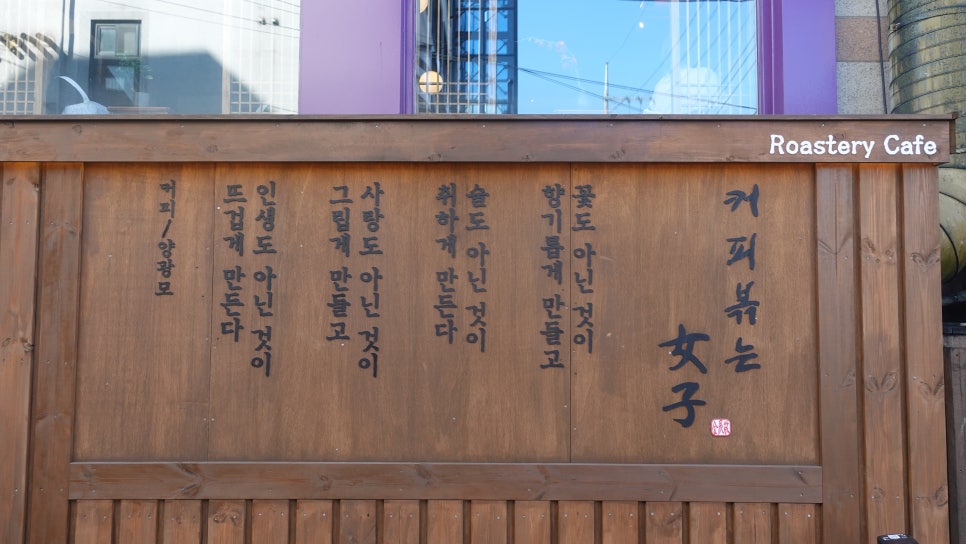 Roastery Cafe
커피 볶는
女子
꽃도 아닌 것이
향기롭게 만들고
술도 아닌 것이
취하게 만든다
사랑도 아닌 것이
그립게 만들고
인생도 아닌 것이
뜨겁게 만든다
커피/양광모